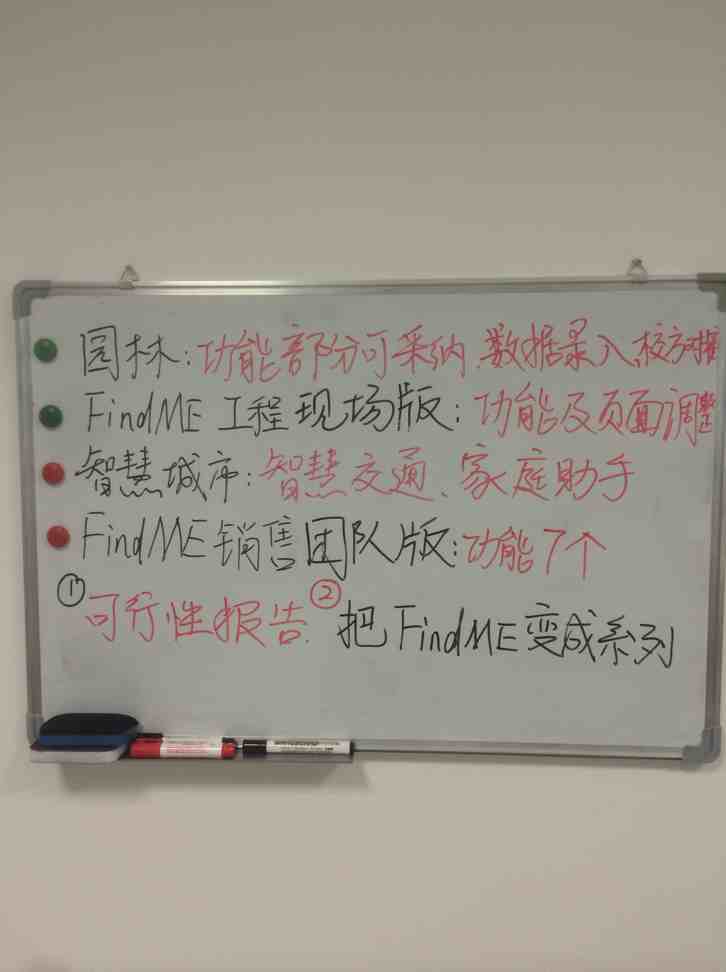 园林:功能部分可采纳、数据录入,校方对接
FindME工程现场版:功能及页面调整
智慧城市:智慧交通、家庭助手
FindME销售团队版:功能7个
①可行性报告. ②把FindME变成系列